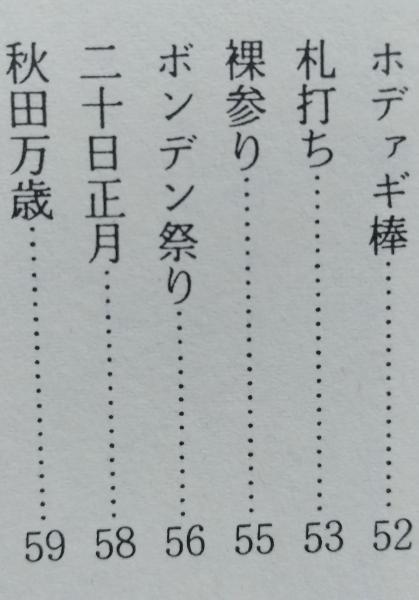 ホデァギ棒……………………52
札打ち……………………53
裸参り……………………55
ボンデン祭り……………………56
二十日正月……………………58
秋田万歳……………………59